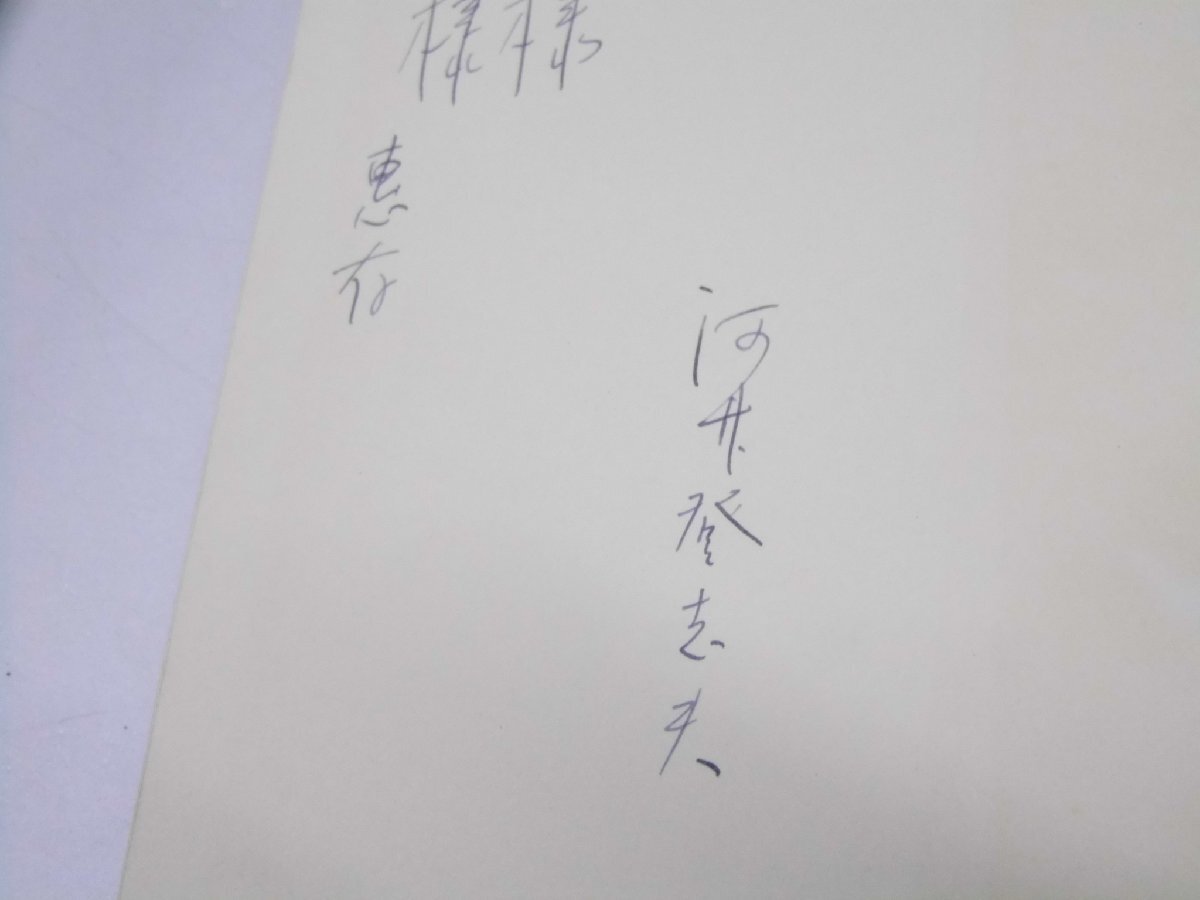 様様
惠存
河井登志夫